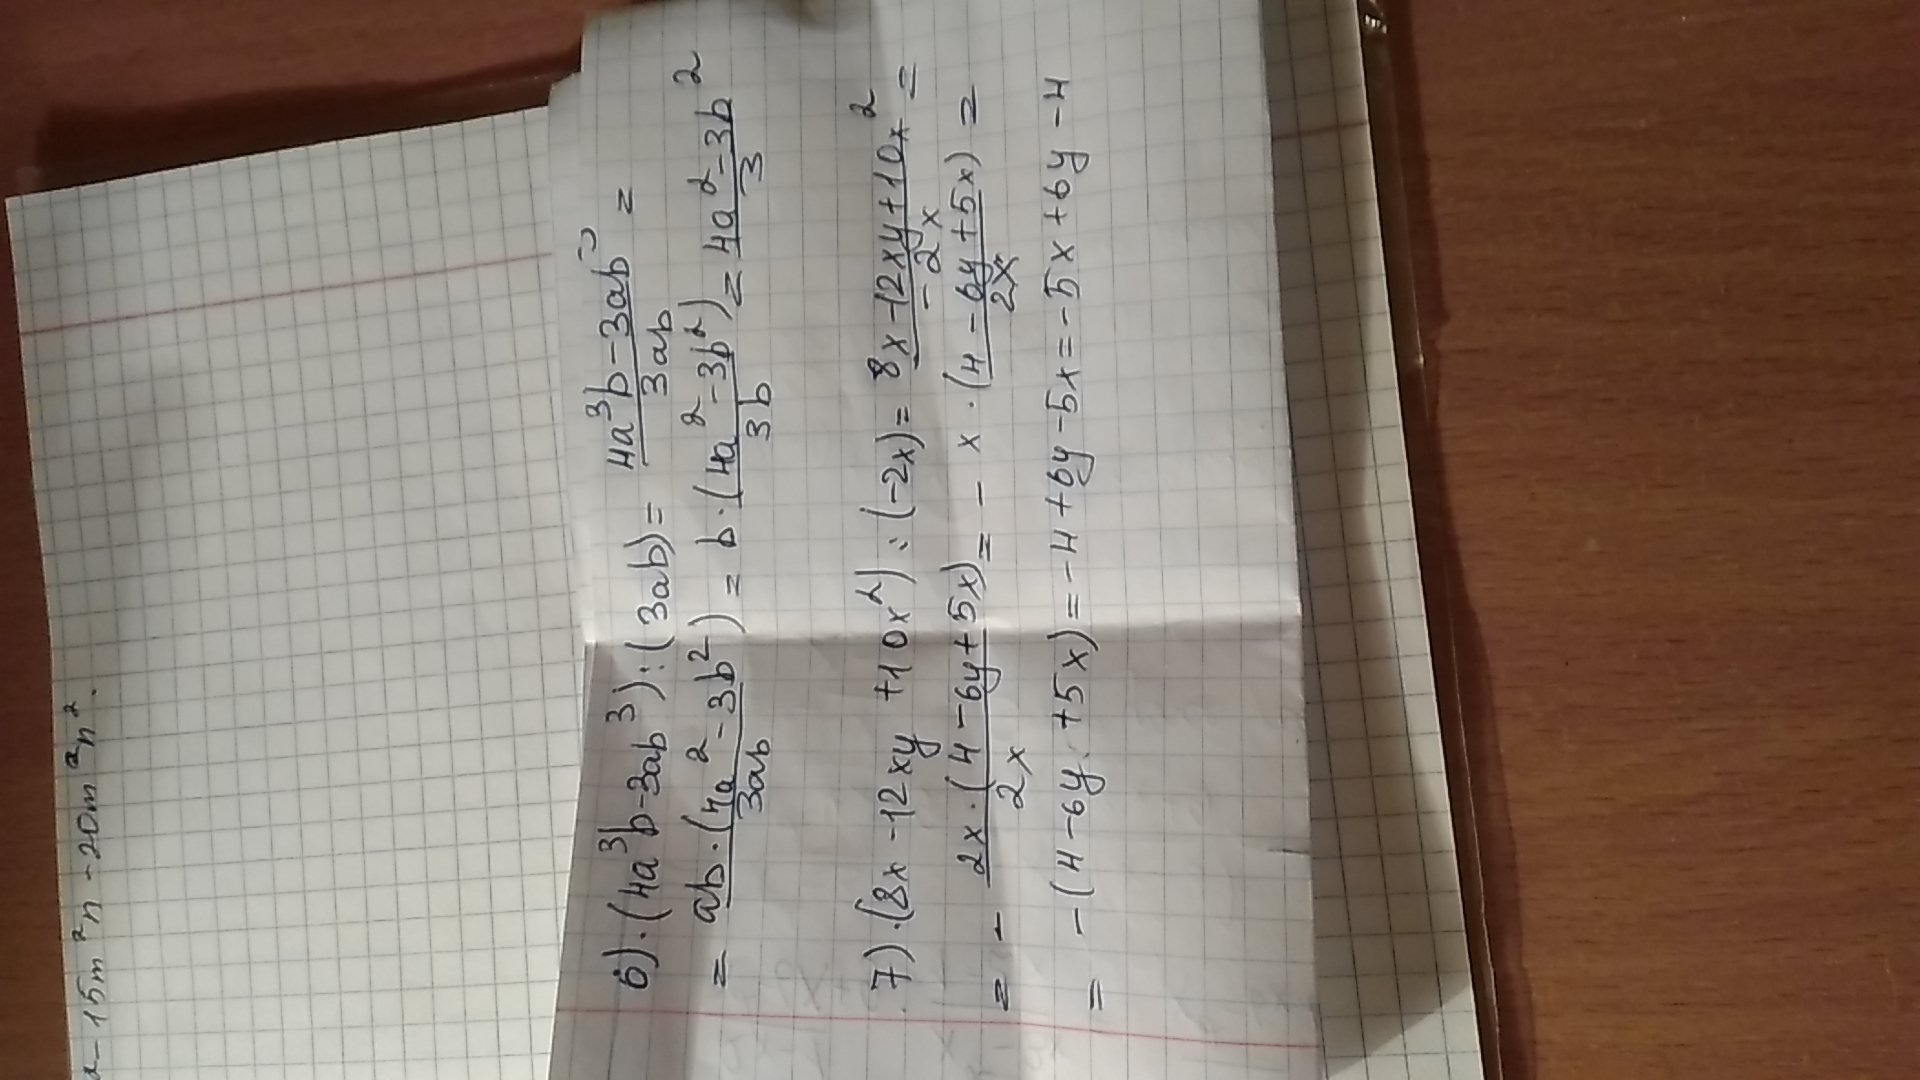 - 15m²n - 20m²n².
6).(4a³b-3ab³):(3ab)= (4a³b-3ab³)/(3ab) =
= ab·(4a²-3b²)/(3ab) = b·(4a²-3b²)/(3b) = (4a²-3b²)/3
7).(8x-12xy+10x²):(-2x)= (8x-12xy+10x²)/(-2x) =
= - 2x·(4-6y+5x)/(2x) = - x·(4-6y+5x)/(2x) =
= -(4-6y+5x)=-4+6y-5x=-5x+6y-4